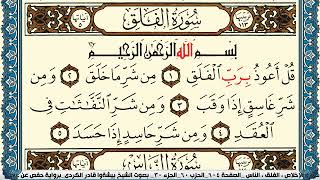 سُورَةُ الفَلَقِ
١١٣
٥
بِسْمِ اللَّهِ الرَّحْمَٰنِ الرَّحِيمِ
قُلْ أَعُوذُ بِرَبِّ الْفَلَقِ ١ مِن شَرِّ مَا خَلَقَ ٢ وَمِن
شَرِّ غَاسِقٍ إِذَا وَقَبَ ٣ وَمِن شَرِّ النَّفَّاثَاتِ فِي
الْعُقَدِ ٤ وَمِن شَرِّ حَاسِدٍ إِذَا حَسَدَ ٥
سُورَةُ النَّاسِ
الإخلاص ، الفلق ، الناس . الصفحة ٦٠٤ . الحزب ٦٠ . الجزء ٣٠ . بصوت الشيخ بيشةوا قادر الكردى . برواية حفص عن